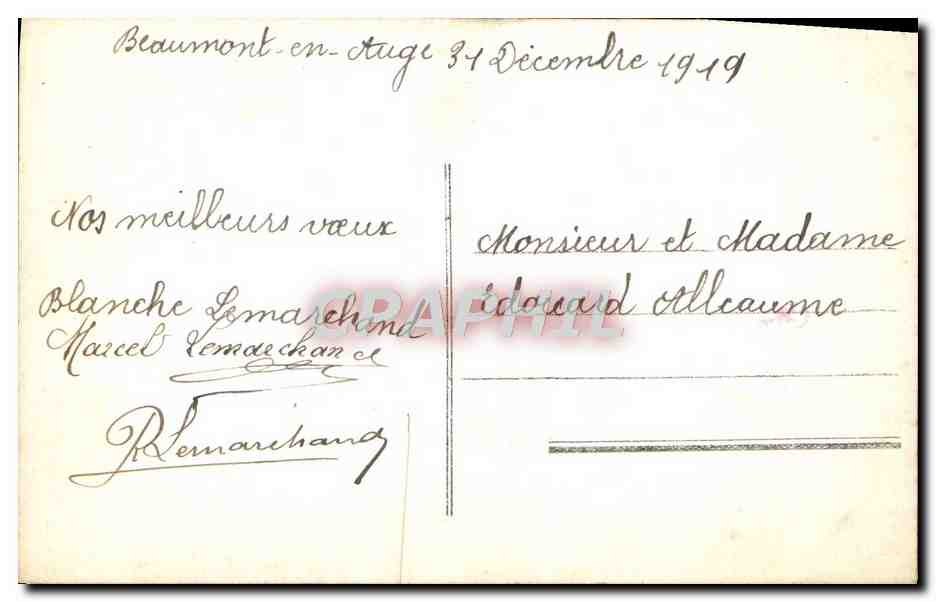 Beaumont-en-Auge 31 Décembre 1919
Nos meilleurs vœux
Blanche Lemarchand
Marcel Lemarchand
R Lemarchand
Monsieur et Madame
Edouard Alleaume
CPAPHIL